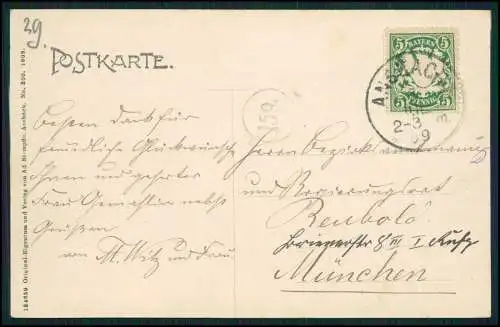 39.
POSTKARTE.
BAYERN
5 5
5 PFENNIG 5
ANSBACH
2-3
09
159.
Besten Dank für
freundliche Glückwünsche
Ihnen und geehrter
Frau Gemahlin nebst
Grüssen
von M. Witz und Frau.
Herrn Bezirksamtmann
und Regierungsrat
Reubold
Briennerstr 8 III I. Aufg.
München
184859 Original-Eigentum und Verlag von Ad. Strempfle, Ansbach, No. 200. 1908.